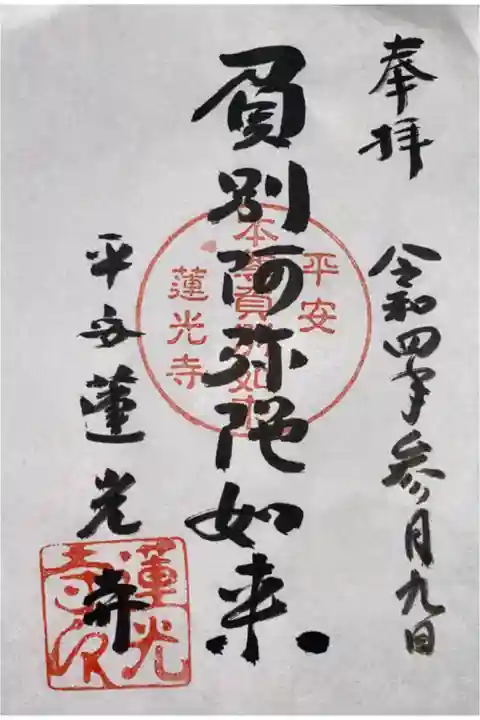 奉拝
令和四年参月九日
負別阿弥陀如来
平安蓮光寺
平安
本尊負別如来
蓮光寺
蓮光寺印